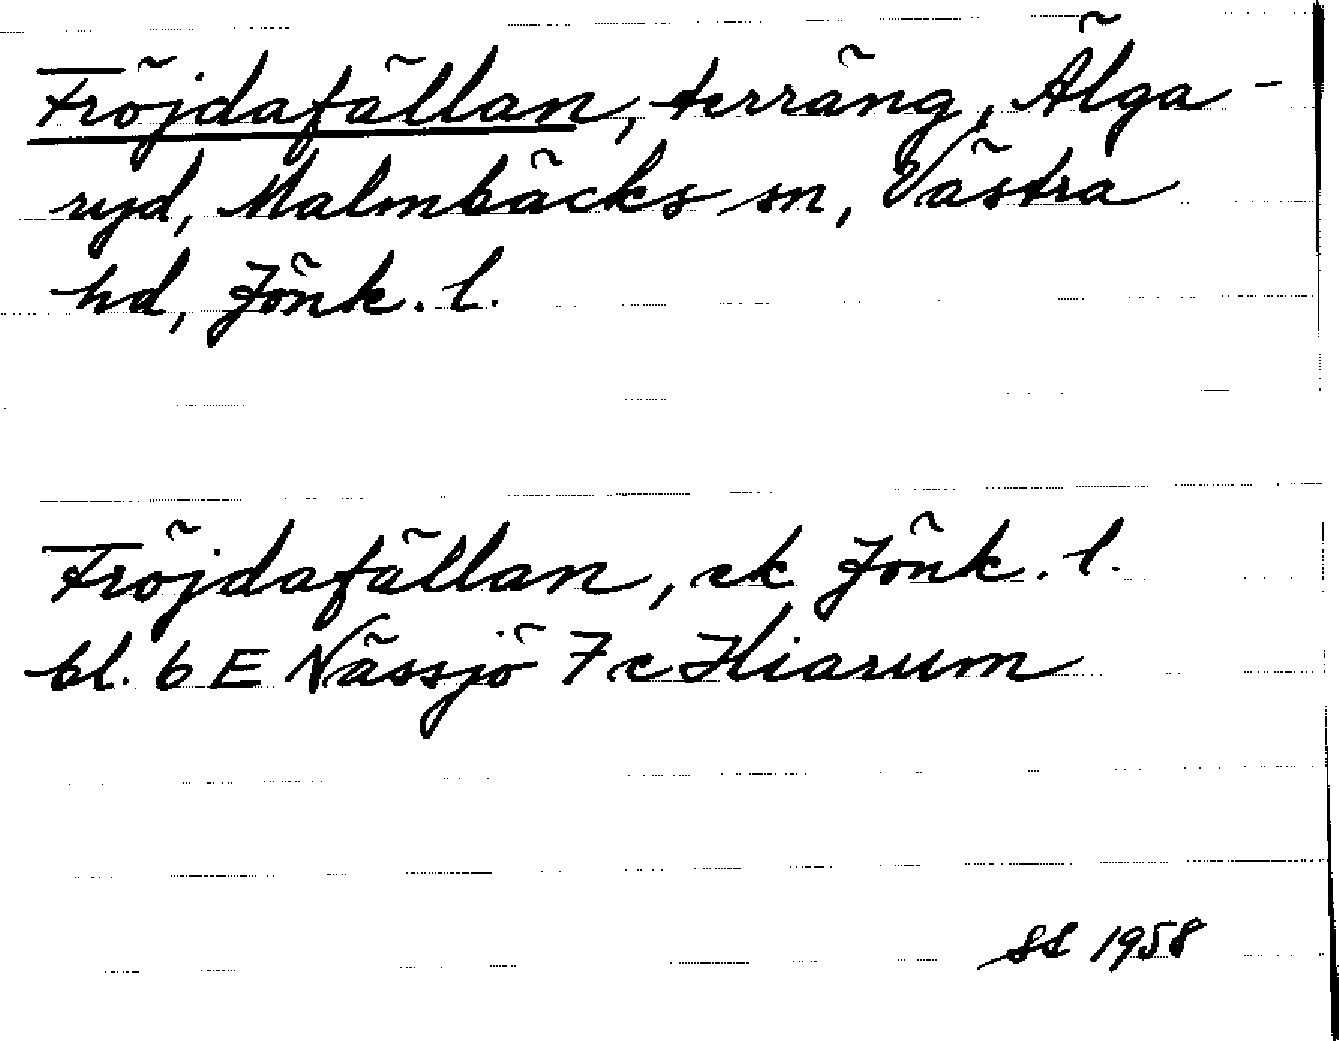 Fröjdafällan, terräng, Älga-
ryd, Malmbäcks sn, Västra
hd, Jönk. l.
Fröjdafällan, ek Jönk. l.
bl. 6 E Nässjö 7 c Hiarum
SL 1958